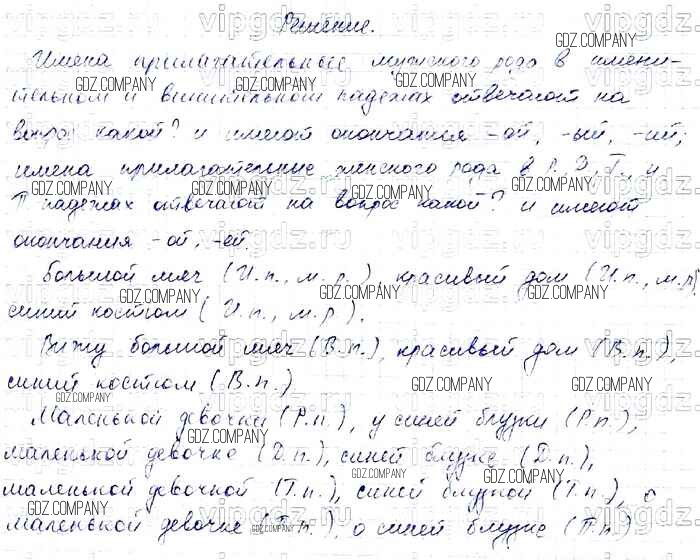 Решение.
Имена прилагательные мужского рода в имени-
тельном и винительном падежах отвечают на
вопрос какой? и имеют окончания -ой, -ый, -ий;
имена прилагательные женского рода в Р., Д., Т., и
П падежах отвечают на вопрос какой? и имеют
окончания -ой, -ей.
Большой мяч (И.п., м.р.), красивый дом (И.п., м.р)
синий костюм (И.п., м.р).
Вижу большой мяч (В.п.), красивый дом (В.п.),
синий костюм (В.п.)
Маленькой девочки (Р.п.), у синей блузки (Р.п.),
маленькой девочке (Д.п.), синей блузке (Д.п.),
маленькой девочкой (Т.п.), синей блузкой (Т.п.), о
маленькой девочке (П.п.), о синей блузке (П.п.)
GDZ.COMPANY
vipgdz.ru